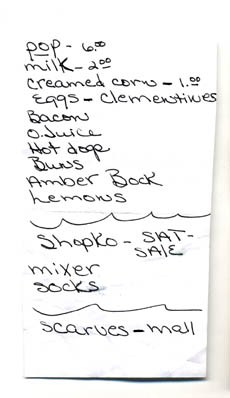 pop - 6.00
milk - 2.00
creamed corn - 1.00
Eggs - Clementines
Bacon
O. Juice
Hot dogs
Buns
Amber Bock
Lemons
Shopko - SAT-
SALE
mixer
socks
scarves - mall